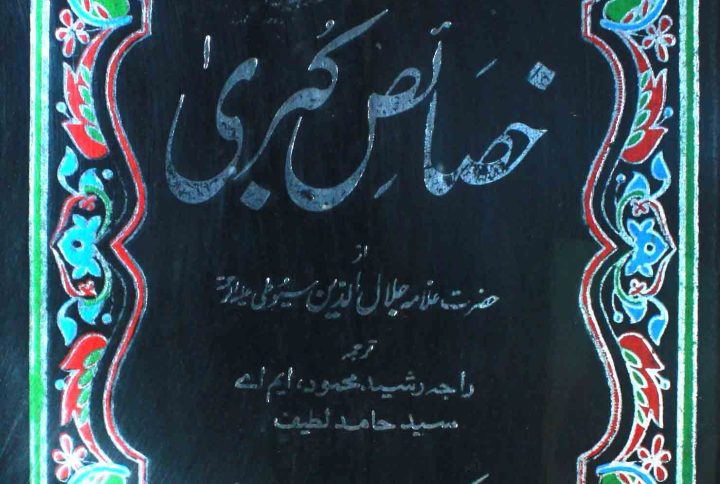 خصائصِ کُبریٰ
از
حضرت علامہ جلال الدین سیوطی
ترجمہ
راجہ رشید محمود، ایم اے
سید حامد لطیف